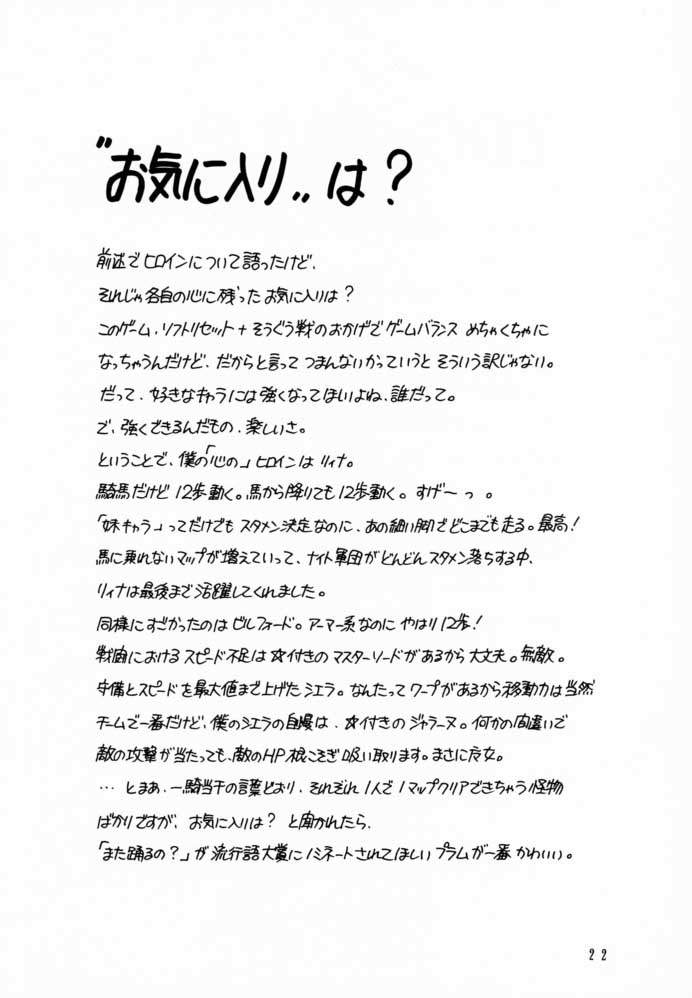 〝お気に入り〟は?
前述でヒロインについて語ったけど、
それじゃ各自の心に残ったお気に入りは?
このゲーム、ソフトリセット+そうぐう戦のおかげでゲームバランスめちゃくちゃに
なっちゃうんだけど、だからと言ってつまんないかっていうとそういう訳じゃない。
だって、好きなキャラには強くなってほしいよね、誰だって。
で、強くできるんだもの、楽しいさ。
ということで、僕の「心の」ヒロインはリィナ。
騎馬だけど12歩動く。馬から降りても12歩動く。すげーっ。
「妹キャラ」ってだけでもスタメン決定なのに、あの細い脚でどこまでも走る。最高!
馬に乗れないマップが増えていって、ナイト軍団がどんどんスタメン落ちする中、
リィナは最後まで活躍してくれました。
同様にすごかったのはビルフォード。アーマー系なのにやはり12歩!
戦闘におけるスピード不足は☆付きのマスターソードがあるから大丈夫。無敵。
守備とスピードを最大値まで上げたシエラ。なんたってワープがあるから移動力は当然
チームで一番だけど、僕のシエラの自慢は、☆付きのジャヌーラ。何かの間違いで
敵の攻撃が当たっても、敵のHP根こそぎ吸い取ります。まさに魔女。
…とまあ、一騎当千の言葉どおり、それぞれ1人で1マップクリアできちゃう怪物
ばかりですが、お気に入りは?と聞かれたら、
「また踊るの?」が流行語大賞にノミネートされてほしいプラムが一番かわいい。
22